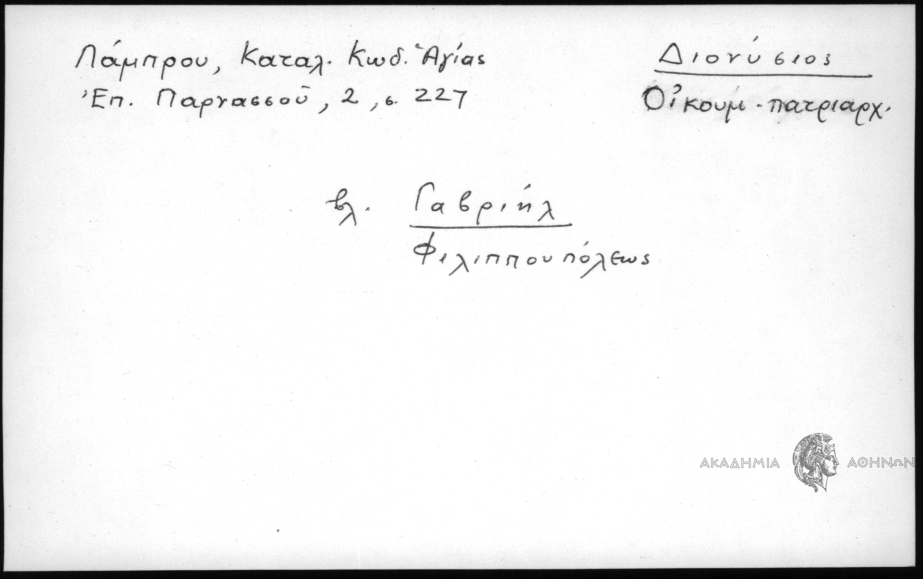 Λάμπρου, Καταλ. Κωδ. Ἁγίας
Ἐπ. Παρνασσοῦ, 2, σ. 227
Διονύσιος
Οἰκουμ. πατριαρχ.
βλ. Γαβριήλ
Φιλιππουπόλεως
ΑΚΑΔΗΜΙΑ ΑΘΗΝΩΝ